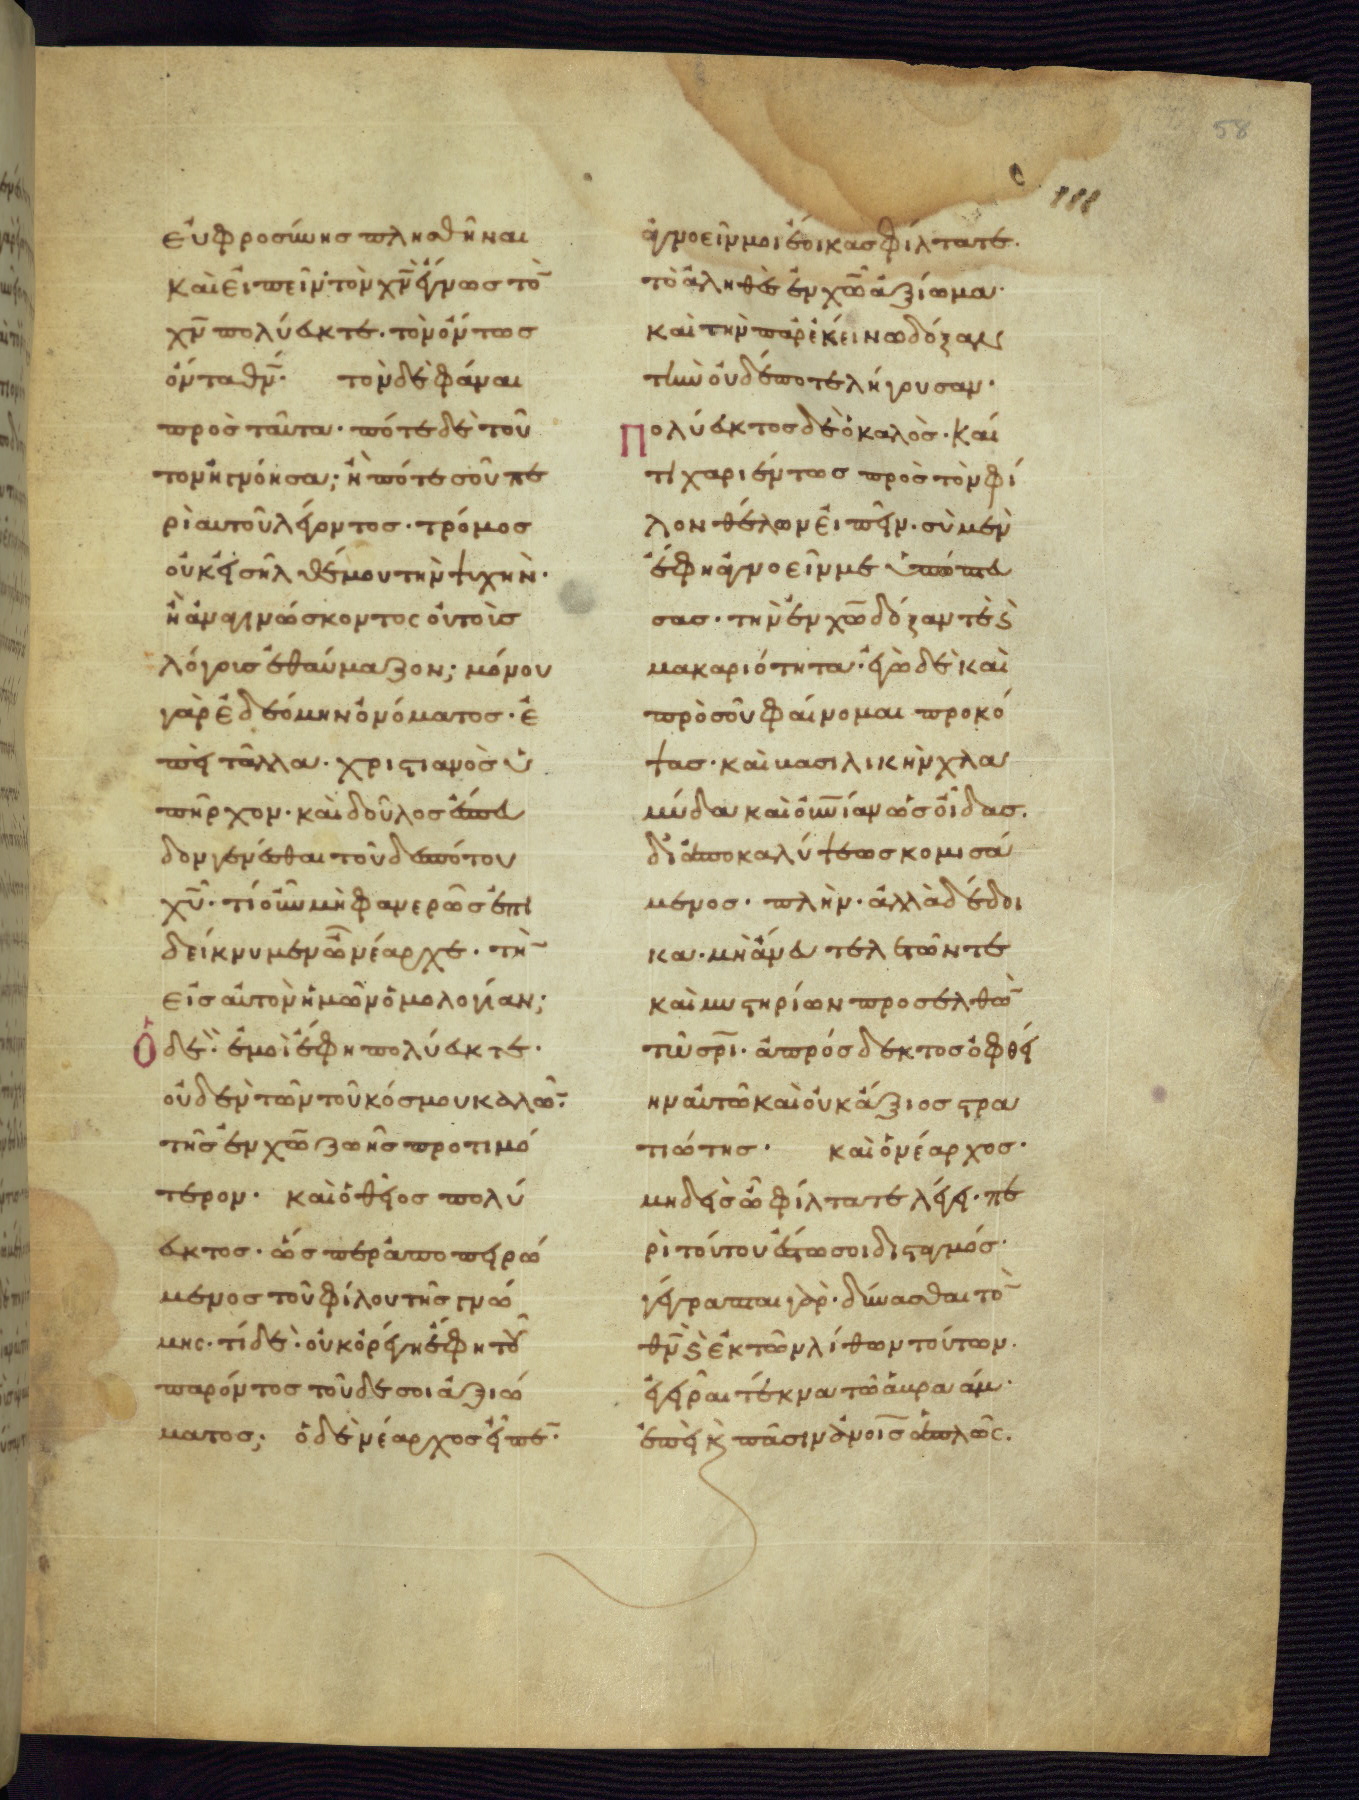 58
188
εὐφροσύνης πλησθῆναι
καὶ εἰπεῖν· τὸν χ̅ν̅ ἔγνως τὸ̅
χ̅ν̅ πολύευκτε. τὸν ὄντως
ὄντα θ̅ν̅· τὸν δὲ φάναι
πρὸς ταῦτα· πότε δὲ τοῦ
τον ἠγνόησα; ἢ πότε σοῦ πε
ρὶ αὐτοῦ λέγοντος. τρόμος
οὐκ εἰσῆλθέ μου τὴν ψυχήν.
ἢ ἀναγινώσκοντος οὐ τοῖς
λόγοις ἐθαύμαζον; μόνου
γὰρ ἐδεόμην ὀνόματος. ἐ
πεὶ τἆλλα. χριστιανὸς ὑ
πῆρχον. καὶ δοῦλος ἔσπευ
δον γενέσθαι τοῦ δεσπότου
χ̅υ̅· τί οὖν μὴ φανερῶς ἐπι
δείκνυμεν ὦ νέαρχε. τὴ̅
εἰς αὐτὸν ἡμῶν ὁμολογίαν;
Ὁ δέ· ἐμοὶ ἔφη πολύευκτε.
οὐδὲν τῶν τοῦ κόσμου καλῶ̅·
τῆς ἐν χ̅ω̅ ζωῆς προτιμό
τερον. καὶ ὁ θεῖος πολύ
ευκτος. ὥσπερ ἀποπειρώ
μενος τοῦ φίλου τῆς γνώ
μης. τί δέ· οὐκ ὀρέγῃ ἔφη τοῦ
παρόντος τοῦδε σοι ἀξιώ
ματος; ὁ δὲ νέαρχος εἶπε̅·
ἀγνοεῖν μοι ἔοικας φίλτατε.
τὸ ἀληθὲς ἐν χ̅ω̅ ἀξίωμα·
καὶ τὴν παρ' ἐκείνω δόξαν
τὴν οὐδέποτε λήγουσαν.
Πολύευκτος δὲ ὁ καλὸς. καί
τι χαριέντως πρὸς τὸν φί
λον θέλων εἰπεῖν. σὺ μὲν
ἔφη ἀγνοεῖν με ὑπώπτευ
σας. τὴν ἐν χ̅ω̅ δόξαν τὲ ϗ
μακαριότητα· ἐγὼ δὲ καὶ
πρὸ σοῦ φαίνομαι προκό
ψας. καὶ βασιλικὴν χλα
μύδα καὶ οὐρανίαν ὡς οἶδας.
δι' ἀποκαλύψεως κομισά
μενος. πλὴν. ἀλλὰ δέδοι
κα. μὴ ἄνευ τελετῶν τε
καὶ μυστηρίων προσελθὼ̅
τῶ σ̅ρ̅ι. ἀπρόσδεκτος ὀφθεί
ην αὐτῶ καὶ οὐκ ἄξιος στρα
τιώτης. καὶ ὁ νέαρχος·
μηδεὶς ὦ φίλτατε λέγε. πε
ρὶ τούτου ἔστω σοι δισταγμός.
γέγραπται γάρ. δύνασθαι τὸ̅
θ̅ν̅ ϗ ἐκ τῶν λίθων τούτων.
ἐγεῖραι τέκνα τῶ ἀβρααμ·
ἐπεὶ ϗ πᾶσιν ἀνοῖς ἁπλῶς.